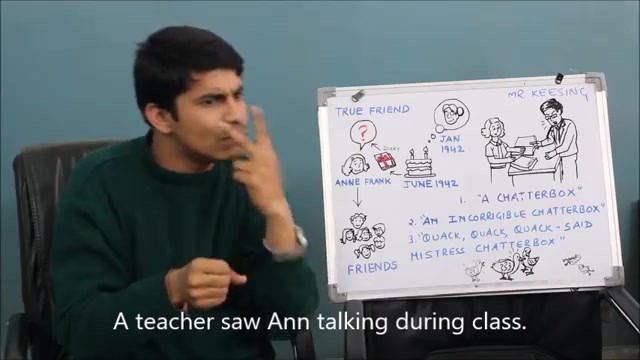 MR KEESING
TRUE FRIEND
?
DIARY
JAN
1942
ANNE FRANK
JUNE 1942
1. "A CHATTERBOX"
2. "AN INCORRIGIBLE CHATTERBOX"
3. "QUACK, QUACK, QUACK - SAID
MISTRESS CHATTERBOX"
FRIENDS
A teacher saw Ann talking during class.